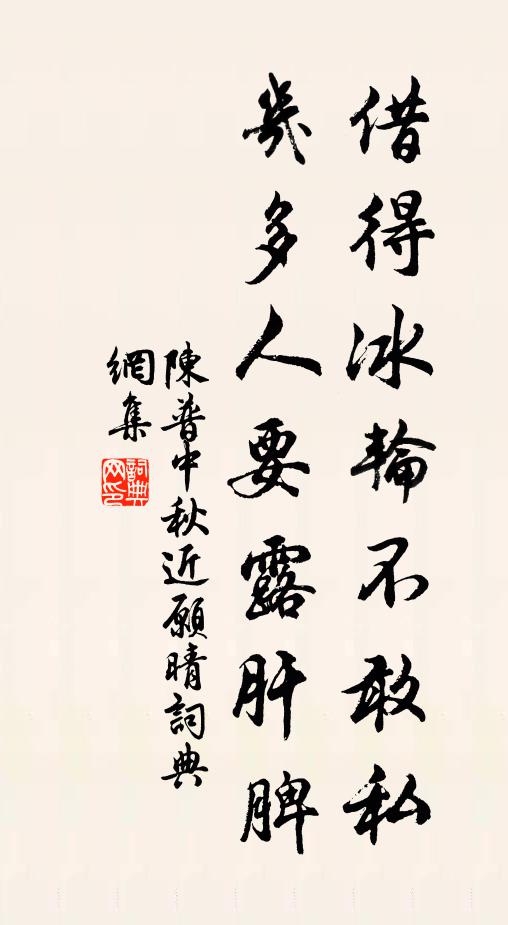 借得冰輪不敢私
幾多人要露肝脾
陳普中秋近願晴詞典
網集
詞典網印